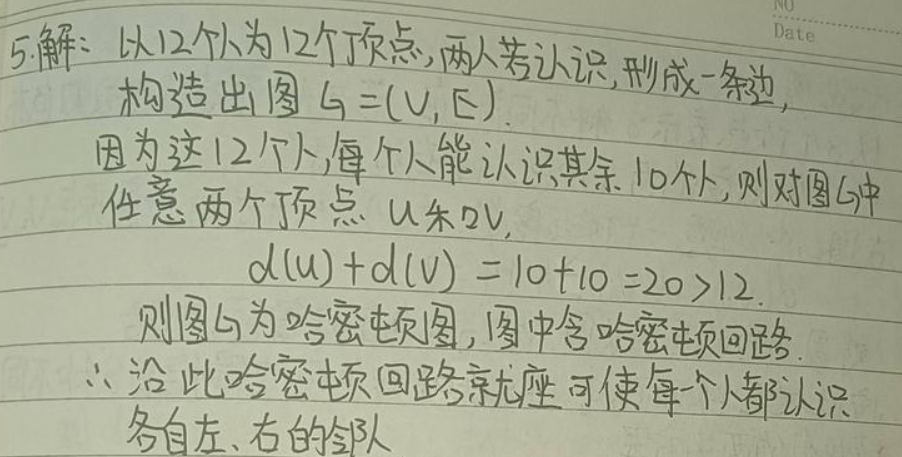 NO
Date
5.解：以12个人为12个顶点,两人若认识,形成一条边,
构造出图G=(V,E).
因为这12个人,每个人能认识其余10个人,则对图G中
任意两个顶点 u和v,
d(u)+d(v)=10+10=20>12.
则图G为哈密顿图,图中含哈密顿回路.
∴沿此哈密顿回路就座可使每一个人都认识
各自左、右的邻队